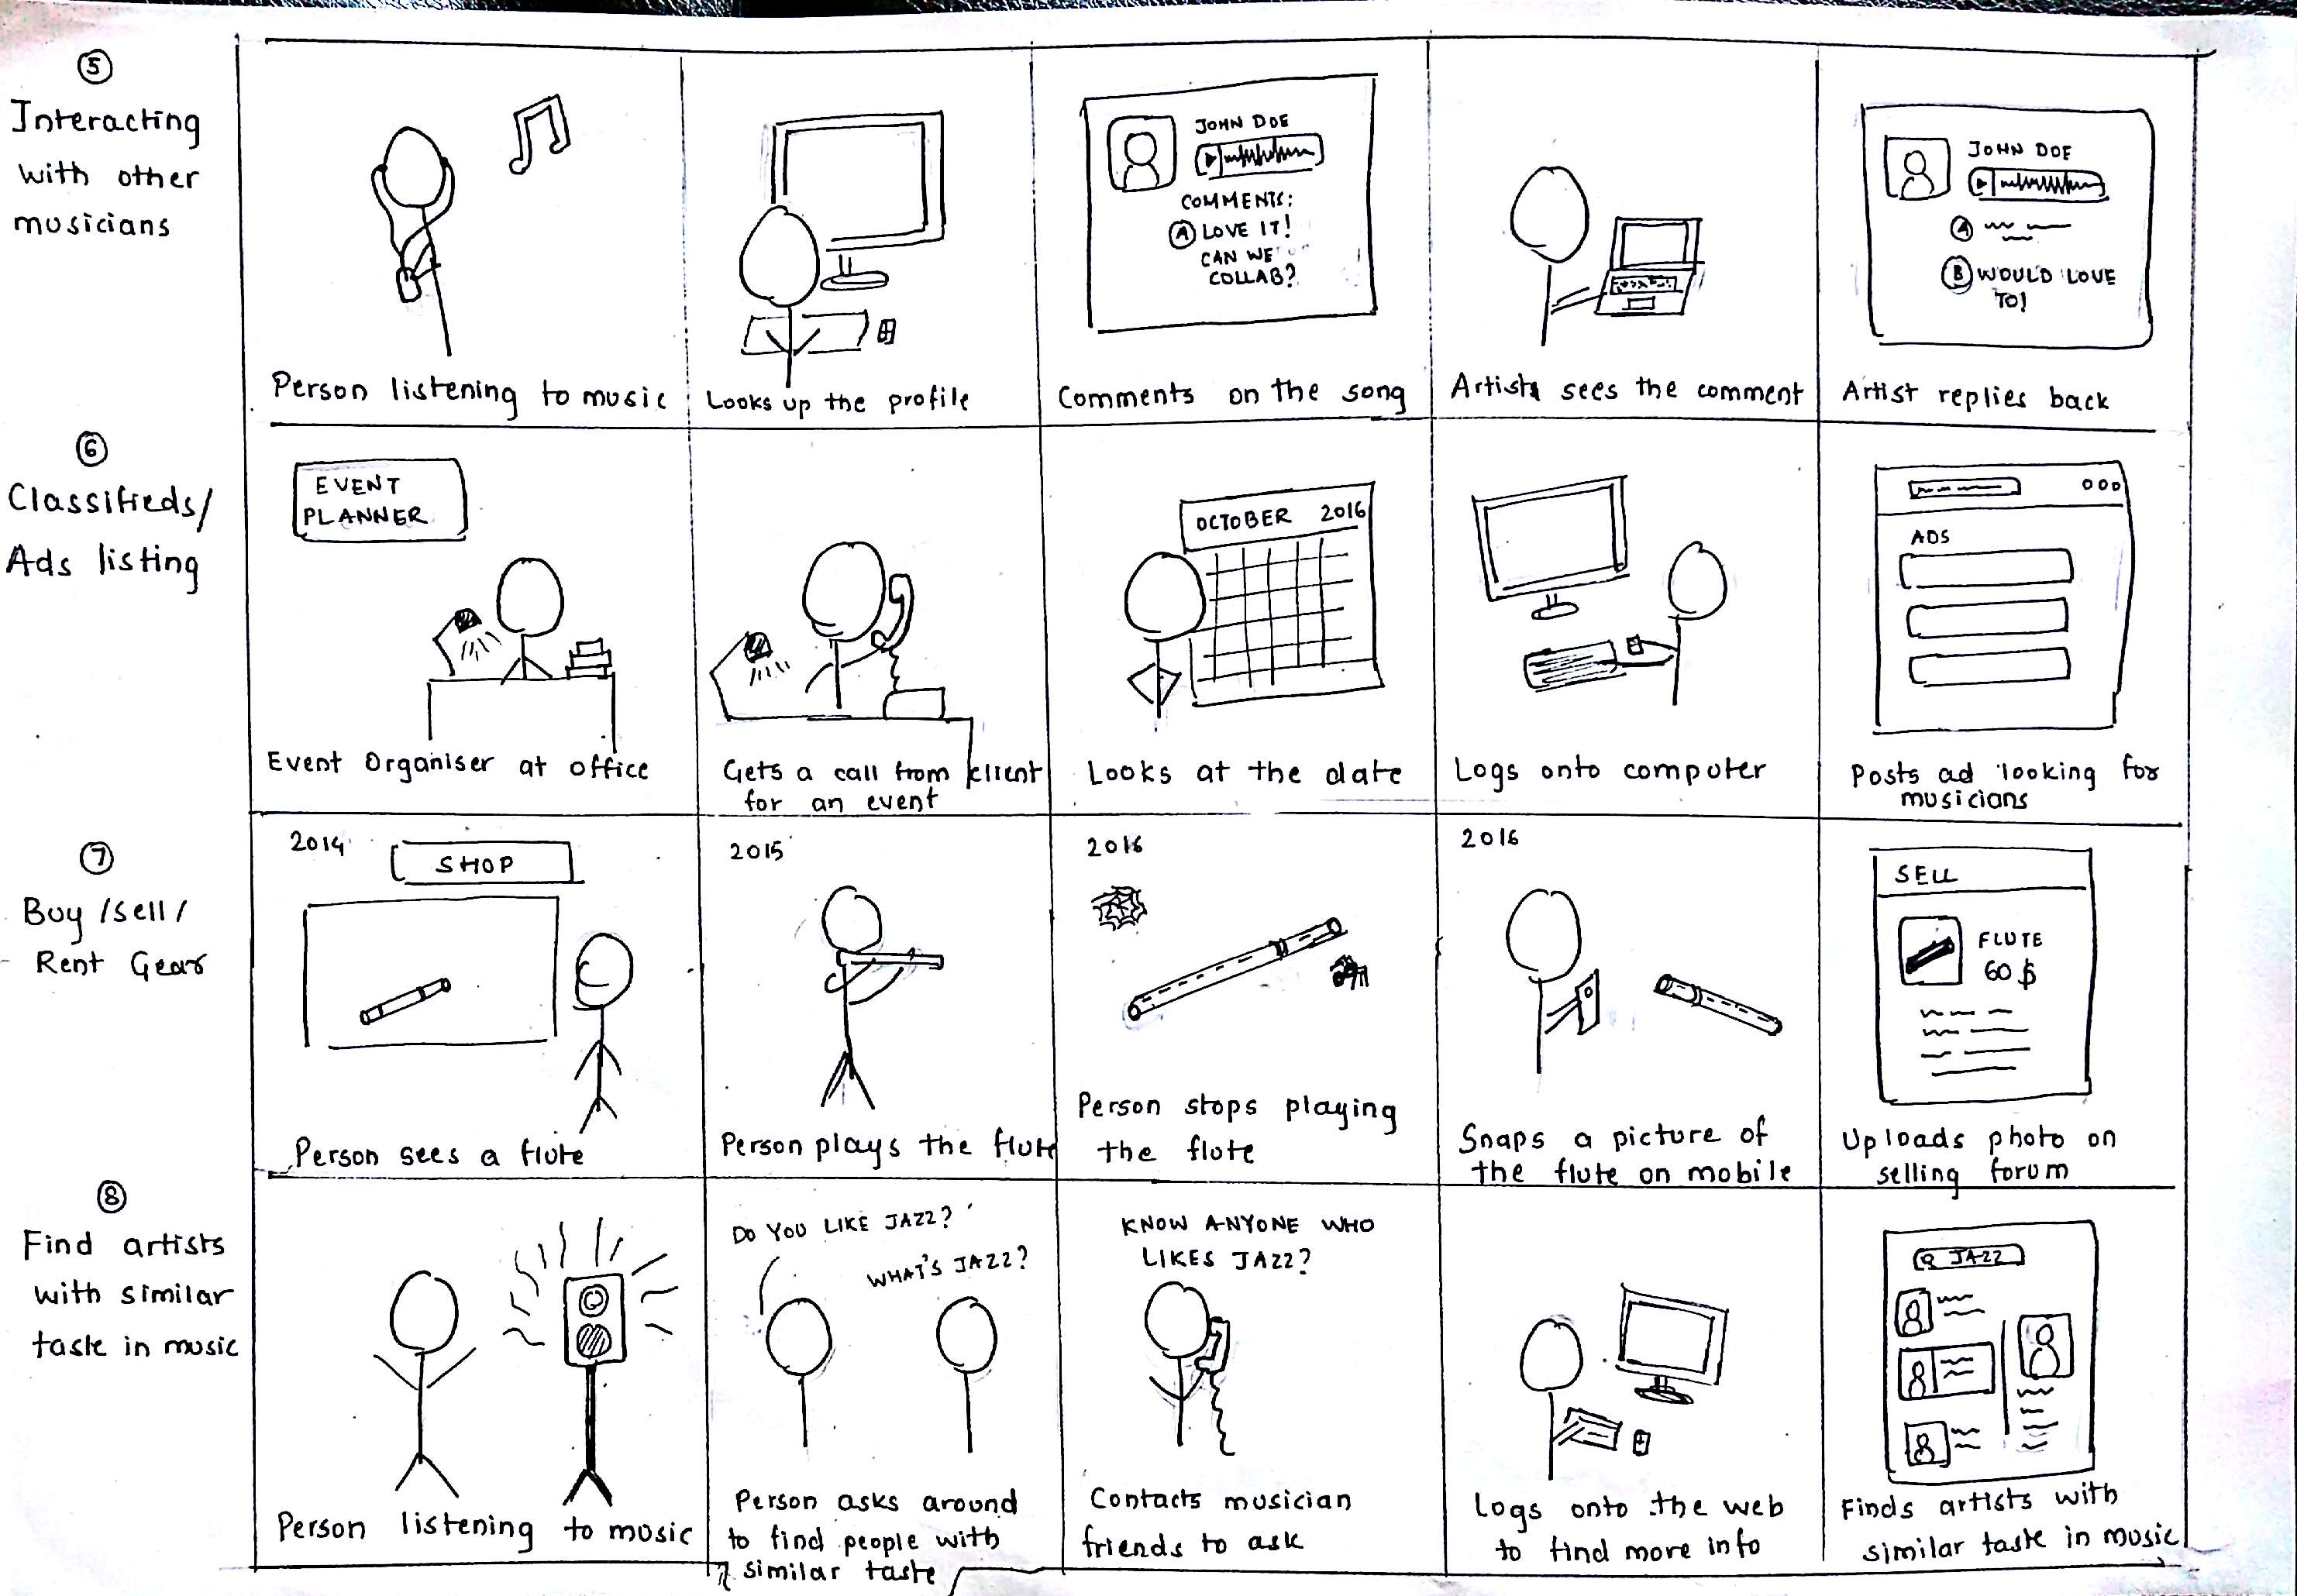 5
Interacting
with other
musicians
Person listening to music
Looks up the profile
JOHN DOE
COMMENTS:
A LOVE IT!
CAN WE
COLLAB?
Comments on the song
Artists sees the comment
JOHN DOE
A
B WOULD LOVE
TO!
Artist replies back
6
Classifieds/
Ads listing
EVENT
PLANNER
Event Organiser at office
Gets a call from client
for an event
OCTOBER 2016
Looks at the date
Logs onto computer
ADS
Posts ad looking for
musicians
7
Buy /sell/
Rent Gear
2014
SHOP
Person sees a flute
2015
Person plays the flute
2016
Person stops playing
the flute
2016
Snaps a picture of
the flute on mobile
SELL
FLUTE
60 $
Uploads photo on
selling forum
8
Find artists
with similar
taste in music
Person listening to music
DO YOU LIKE JAZZ?
WHAT'S JAZZ?
Person asks around
to find people with
similar taste
KNOW ANYONE WHO
LIKES JAZZ?
Contacts musician
friends to ask
Logs onto the web
to find more info
JAZZ
Finds artists with
similar taste in music